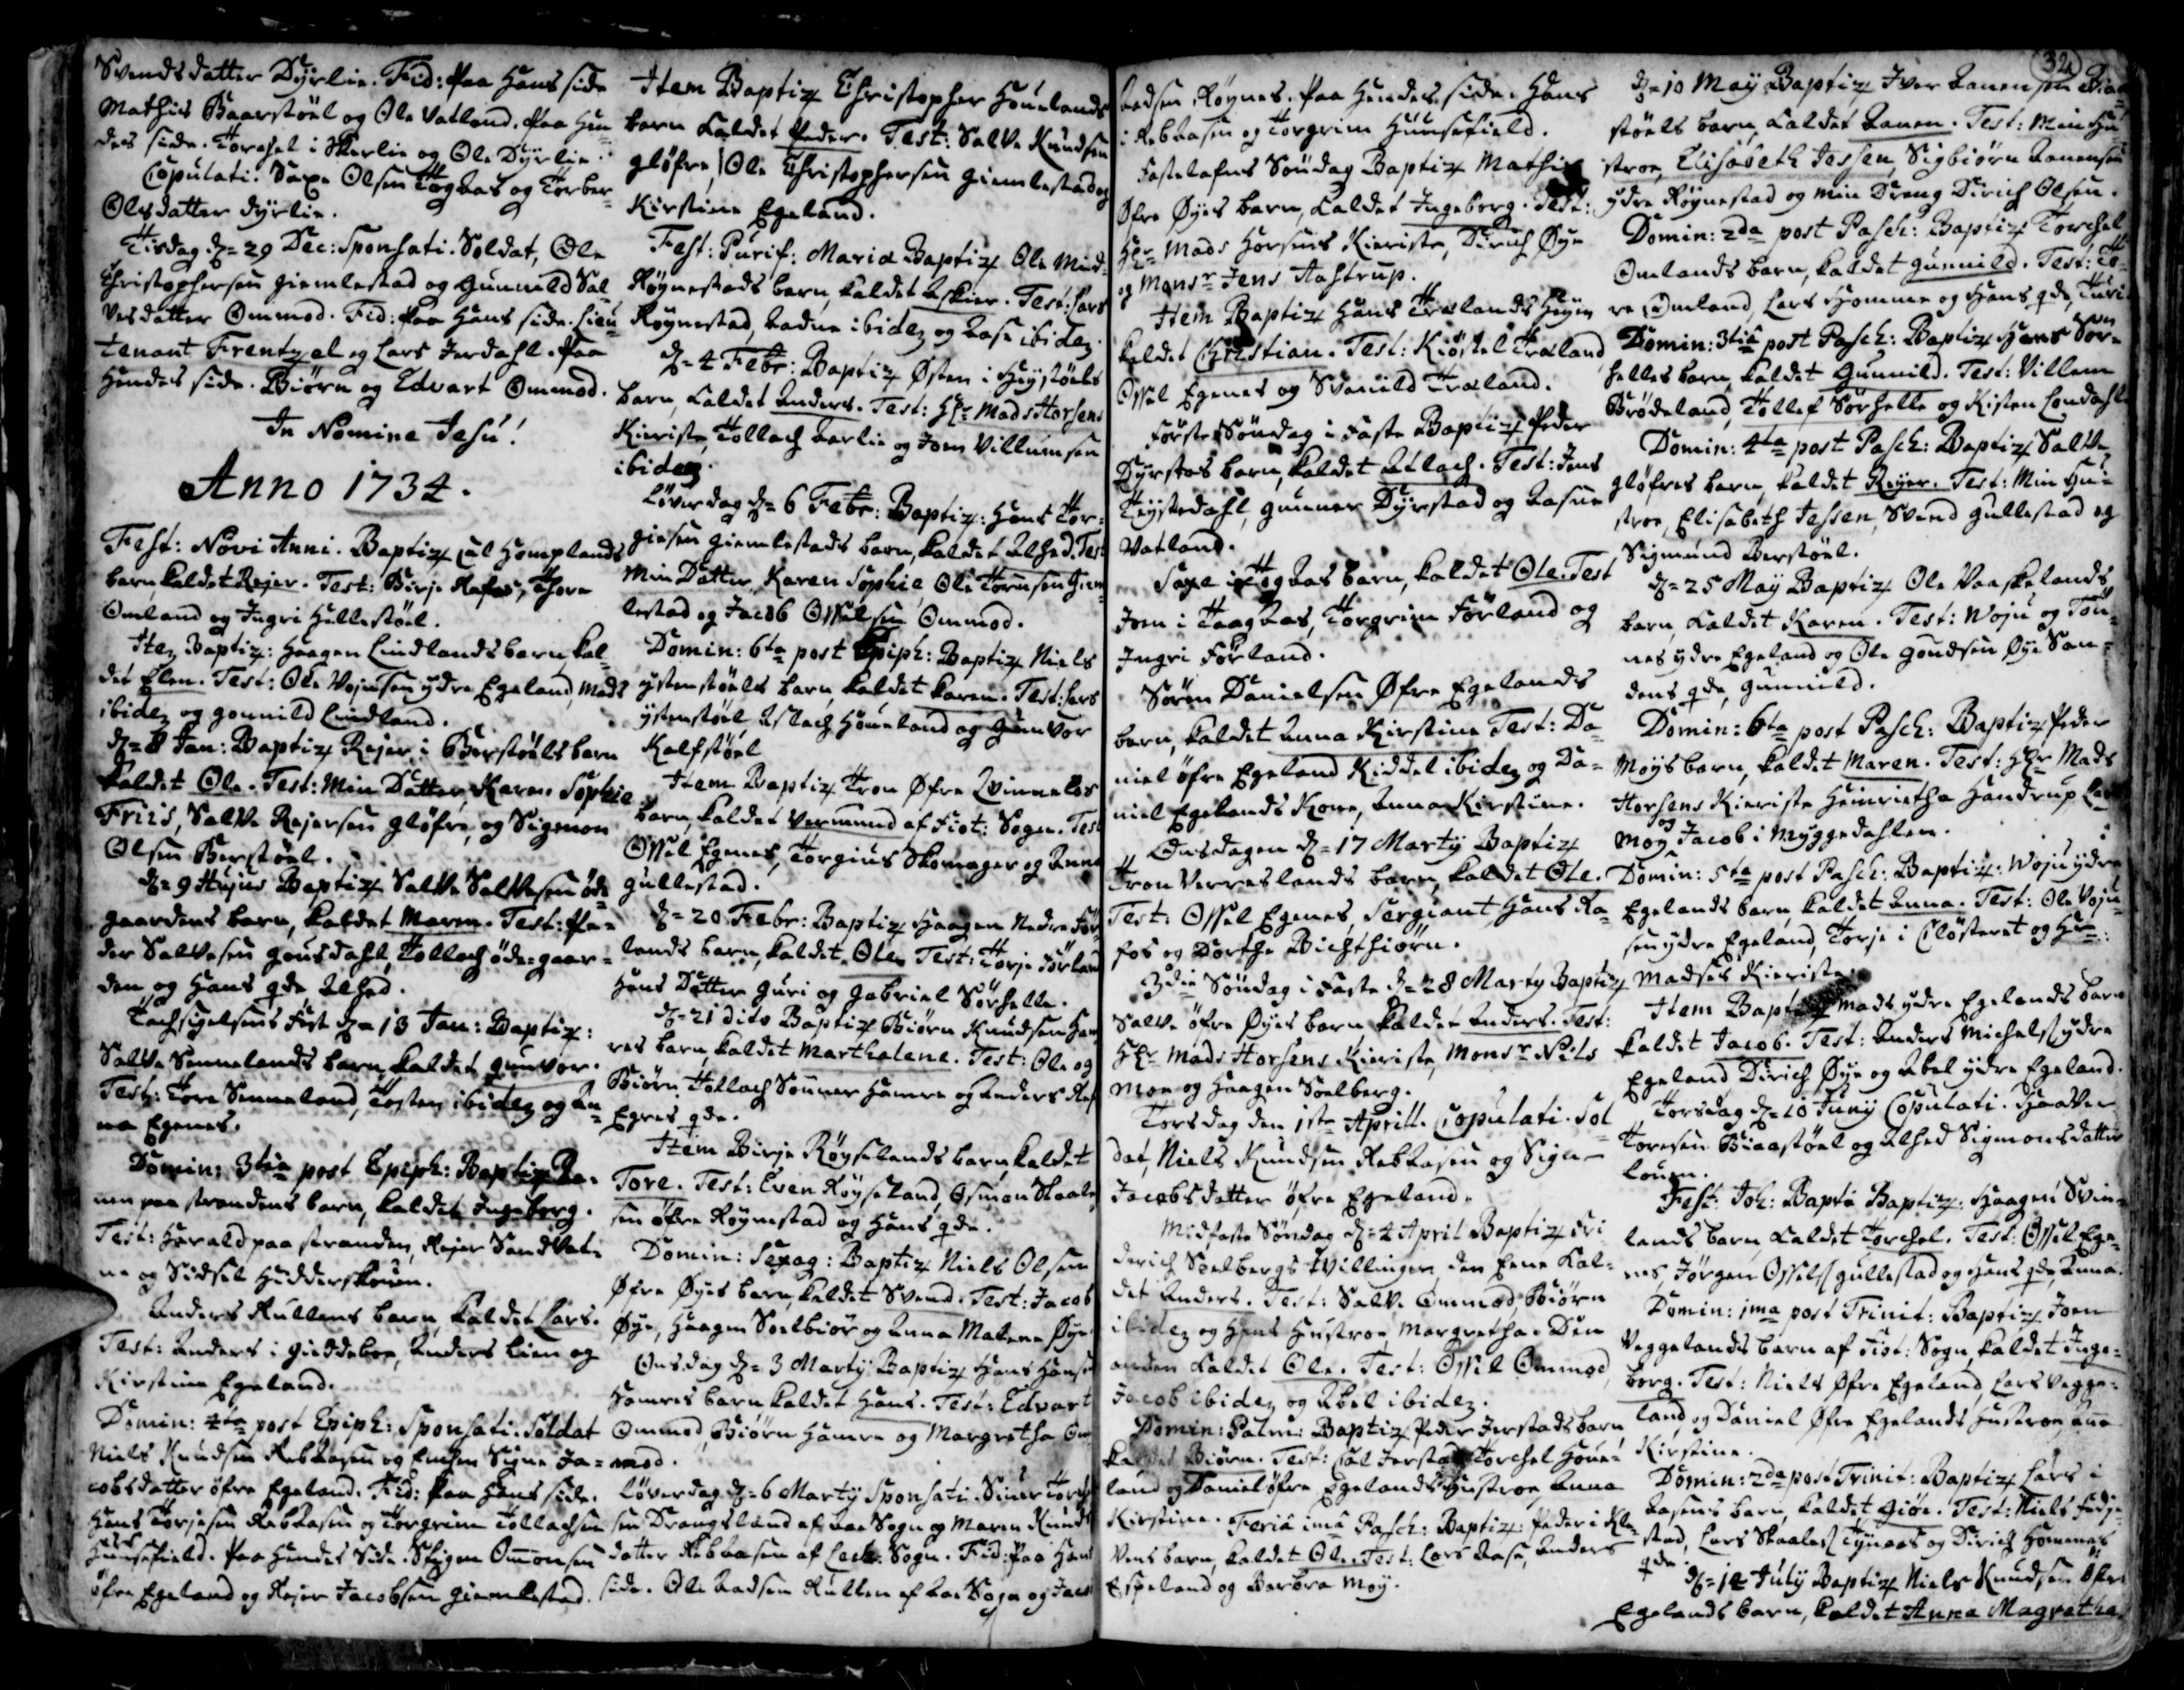 Svendsdatter Dyrlie. Fid: paa Hans side
Mathis Baarstøel og Ole Vatland. paa Hen
des side. Torchel i Skerlie og Ole Dyrlie.
Copulati. Saxe Olsen Tog Aas og Torber
Olsdatter dyrlie.
Tisdag d= 29 Dec: Sponsati. Soldat, Ole
Christophersen giemlestad og Gunnild Sal-
vesdatter Ommod. Fid: paa Hans side. Lieu-
tenant Frentzel og Lars Jerdahl. paa
Hendes side. Biørn og Edvart Ommod.
In Nomine Jesu!
Anno 1734.
Fest: Novi Anni. Baptiz Homplands
barn kaldet Rejer. Test: Birje Thore
Omland og Ingri Hellestøel.
Baptiz: Haagen Lindlands barn kal
det Elen. Test: Ole Wojusen ydre Egeland, Mads
ibidem og gonnild Lindland.
d= 8 Jan: Baptiz Rejer i Børstøels barn
kaldet Ole. Test: Min Datter Karen Sophie
Friis, Salve Rejersen gløfre, og Sigmon
Olsen Berstøel.
d= 9 Hujus Baptiz Salve Salvesen øde
gaardens barn, kaldet Maren. Test: Pe-
der Salvesen gousdahl, Tollach øde=gaar=
den og Hans qde Alhed.
Tachsigelsens fest d= 13 Jan: Baptiz:
Salve Sennelands barn kaldet gunvor.
Test: Tore Senneland, Tosten ibidem og An
na Egenes.
Domin: 3tia post Epiph: Baptiz Ra-
nen paa strandens barn, kaldet Ingeborg.
Test: Harald paa stranden, Rejer Sandvat-
ne og Sidsel
Anders Rullens barn, kaldet Lars.
Test: Anders i gieddeboe, Anders Lien og
Kirstine Egeland.
Domin: 4ta post Epiph: Sponsati. Soldat
Niels Knudsen Rebaasen og Signe Ja=
cobsdatter øfre Egeland. Fid: paa Hans side.
Hans Torjesen Rebaasen og Torgrim Tollachsen
Hunsefield. paa Hendes side. Ommonsen
øfre Egeland og Rejer Jacobsen giemlestad.
Item Baptiz Christopher Houelands
barn kaldet Peder. Test: Salve Knudsen
gløfre, Ole Christophersen giemlestad og
Kirstine Egeland.
Fest: Purif: Mariæ Baptiz Ole Mid-
Røynestads barn, kaldet Askier. Test: Lars
Røynestad, Aadne ibidem og Aase ibidem.
d= 4 Febr: Baptiz Østen i Heystøels
barn, kaldet Anders. Test: Hr Mads Horsens
Kieriste, Tollach Aarlie og Joen Villumsen
ibidem.
Løverdag d= 6 Febr: Baptiz: Hans Tor-
giesen giemlestads barn, kaldet Alhed. Test
Min Datter, Karen Sophie, Ole Tornsen Giem
lestad og Jacob Osselsen Ommod.
Domin: 6ta post Epiph: Baptiz Niels
ystenstøels barn kaldet Karen. Test: Lars
ystenstøel, Aslach Houeland og Gunvor
Kalfstøel
Item Baptiz Tron Øfre
barn, kaldet Vermund af Fiot: Sogn. Test
Ossel Egenes, Torgius Skomager og Anne
gullestad.
d= 20 Febr: Baptiz Haagen Nedre For
lands barn, kaldet Olen. Test: Torje Førland
Hans Datter Guri og Gabriel Sørhelle.
d= 21 dito Baptiz Biørn Knudsen Ham
res barn, kaldet Marthalene. Test: Ole og
Biørn Hollach Hamre og Anders
Egnes qde.
Item Birje Røyselands barn kaldet
Tore. Test: Even Røyseland, Osmon
sen øfre Røynestad og Hans qde.
Domin: Sexag: Baptiz Niels Olsen
Øfre Øyes barn kaldet Svend. Test: Jacob
Øye, Haagen Soelbiør og Anna Malena Øye
Onsdag d= 3 Martij Baptiz Hans Hansen
Hamres barn kaldet Hans. Test: Edvart
Ommod, Biørn Hamre og Margretha Om
mod.
Løverdag d= 6 Martij Sponsati. Siver Torch
sen Drangsland af Aae Sogn og Maren Knuds
datter Rebaasen af Leck: Sogn. Fid: paa Hans
side. Ole Aadsen Rullen af Aae Sogn og Jacob
Aadsen Røynes. paa Hendes side. Hans
i Rebaasen og Torgrim Hunsefield.
Fastelafns Søndag Baptiz Mathis
Øfre Øyes barn, kaldet Ingeborg. Test:
Hr Mads Horsens Kieriste, Dirich Øye
og Monsr Jens Aastrup.
Item Baptiz Hans Træland
kaldet Christian. Test: Kiøstel Træland
Ossel Egenes og Svenild Træland.
Første Søndag i Faste Baptiz Peder
Dyrstads barn, kaldet Atlach. Test: Jens
Tøystedahl, gunner Dyrstad og Aasne
Vatland.
Saxe i Tog Aas barn, kaldet Ole. Test
Joen i Taag Aas, Torgrim Førland og
Ingri Førland.
Søren Danielsen Øfre Egelands
barn, kaldet Anna Kirstine Test: Da
niel øfre Egeland Kiddel ibidem og Da=
niel Egelands Kone, Anna Kirstine.
Onsdagen d= 17 Martij Baptiz
Tron Verreslands barn, kaldet Ole.
Test: Ossel Egenes, Sergiant Hans Ra-
fos og Dorthe Bichthiørn.
3die Søndag i Faste d= 28 Martij Baptiz
Salve øfre Øyes barn kaldet Anders. Test:
Hr Mads Horsens Kieriste, Monsr Nils
Moe og Haagen Soelberg.
Torsdag den 1ste Aprill. Copulati. Sol
dat, Niels Knudsen Rebaasen og Signe
Jacobsdatter øfre Egeland.
Midfaste Søndag d= 4 April Baptiz Fri
derich Soelbergs Tvillinger, den Eene Kal=
det Anders. Test: Salve Ommod, Biørn
ibidem og Hans Hustroe Margretha. Den
anden kaldet Ole. Test: Ossel Ommod,
Jacob ibidem og Abel ibidem.
Domin: Palm: Baptiz Peder Jerstads barn
kaldet Biørn. Test: Jerstad Torchel Houe-
land og Daniel øfre Egelands Hustroe, Anna
Kirstine. Feriâ imâ Pasch: Baptiz: Peder i Kle
vens barn, kaldet Ole. Test: Lars Aase, Anders
Espeland og Barbra Moy.
32
d= 10 May Baptiz Iver Aanensen Biaa
støels barn kaldet Aanen. Test: Min Hu
stroe, Elisabeth Jessen, Sigbiørn Aanensen
ydre Røynestad og min Dreng Dirich Olsen.
Domin: 2da post Pasch: Baptiz Torchel
Omlands barn, kaldet gunnild. Test: To
re Omland, Lars Homme og Hans qde, Turi
Domin: 3tiâ post Pasch: Baptiz Hans Sør-
helles barn kaldet Gunnild. Test: Villem
Brødeland, Tollef Sørhelle og Kisten Londahl
Domin: 4ta post Pasch: Baptiz Salve
gløfres barn, kaldet Rejer. Test: Min Hu-
stroe, Elisabeth Jessen, Svend gullestad og
Sigmund Berstøel.
d= 25 May Baptiz Ole Vaaselands
barn, kaldet Karen. Test: Woju og Ton
nes ydre Egeland og Ole goudsen Øye San=
dens qde, gunnild.
Domin: 6ta post Pasch: Baptiz Peder
Moys barn, kaldet Maren. Test: Hr Mads
Horsens Kieriste Heinrietha Handrup, Lars
Moy og Jacob i Myggedahlen.
Domin: 5ta post Pasch: Baptiz: Woju ydre
Egelands barn kaldet Anna. Test: Ole Voju
sen ydre Egeland, Torje i Closteret og Hr:
Madses Kieriste.
Item Baptiz Mads ydre Egelands barn
kaldet Jacob. Test: Anders Michels ydre
Egeland Dirich Øye og Abel ydre Egeland.
Torsdag d= 10 Junij Copulati. Haaver
Toresen Biaastøel og Alhed Sigmonsdatter
Louen.
Fest: Joh: Bapta Baptiz: Haagen Svin
lands barn kaldet Torchel. Test: Ossel Ege
nes, Jørgen Ossels gullestad og Hans qde Anna.
Domin: 1ma post Trinit: Baptiz Joen
Veggelands barn af Fiot: Sogn, kaldet Inge=
borg. Test: Niels Øfre Egeland, Lars Vegge-
land, og Daniel Øfre Egelands Hustroe Anna
Kirstine.
Domin: 2da post Trinit: Baptiz Lars i
Aasens barn, kaldet Giøe. Test: Niels
stad, Lars Tynaas og Dirich Hommes
qde
d= 12 July Baptiz Niels Knudsen Øfre
Egelands barn, kaldet Anna Magretha